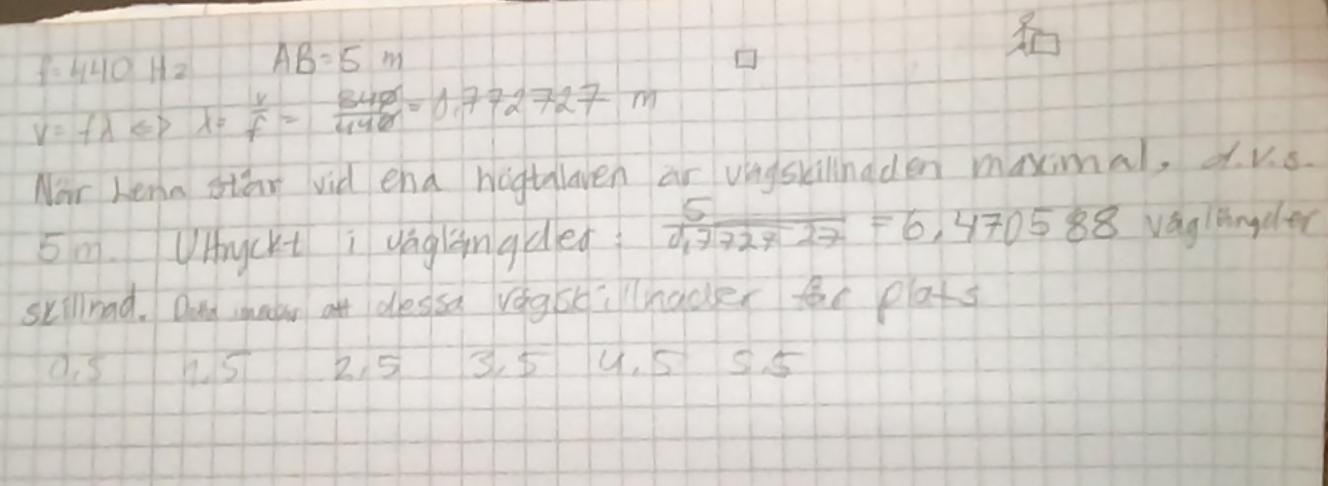 f=440 Hz AB=5 m
v=fλ <=> λ= v/f = 340/440 = 0,772727 m
När Lena står vid ena högtalaren är vägskillnaden maximal, d.v.s.
5 m. Uttryckt i våglängder: 5/0,772727 = 6,470588 våglängder
skillnad. Detta innebär att dessa vägskillnader får plats
0,5 1,5 2,5 3,5 4,5 5,5